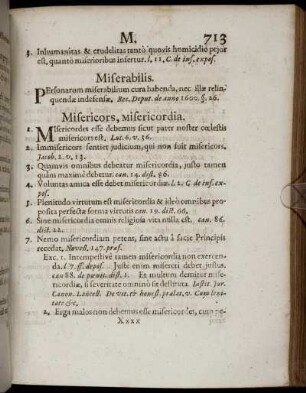 M. 713
3. Inhumanitas & crudelitas tantò quovis homicidio pejor
est, quantò miserioribus infertur. l. 11. C. de inf. expos.
Miserabilis.
Personarum miserabilium cura habenda, nec illæ relin-
quendæ indefensæ, Rec. Deput. de anno 1600. §. 26.
Misericors, Misericordia.
1. Misericordes esse debemus sicut pater noster cœlestis
misericors est, Luc. 6. v. 36.
2. Immisericors sentiet judicium, qui non fuit misericors,
Jacob. 2. v. 13.
3. Quamvis omnibus debeatur misericordia, justo tamen
quàm maximè debetur. can. 14. dist. 86.
4. Voluntas amica esse debet misericordiæ. l. 2. C. de inf. ex-
pos.
5. Plenitudo virtutum est misericordia & ideò omnibus pro-
posita perfecta forma virtutis can. 19. dist. 86.
6. Sine misericordia omnis religiosa vita nulla est. can. 86.
dist. 22.
7. Nemo misericordiam petens, sine actu à facie Principis
recedat, Novell. 147. præf.
Exc. 1. Intempestivè tamen misericordia non exercen-
da. l. 7. ff. depos. Justi enim misereri debet justitia,
can 88. de pœnit. dist. 1. Et multum demitur mise-
ricordiæ, si severitate omninò sit destituta. Instit. Jur.
Canon. Lancell. De vit. & honest. prælat. v. Cum levi-
tate &c.
2. Erga malos non debemus esse misericordes, cum pe-
Xxxx